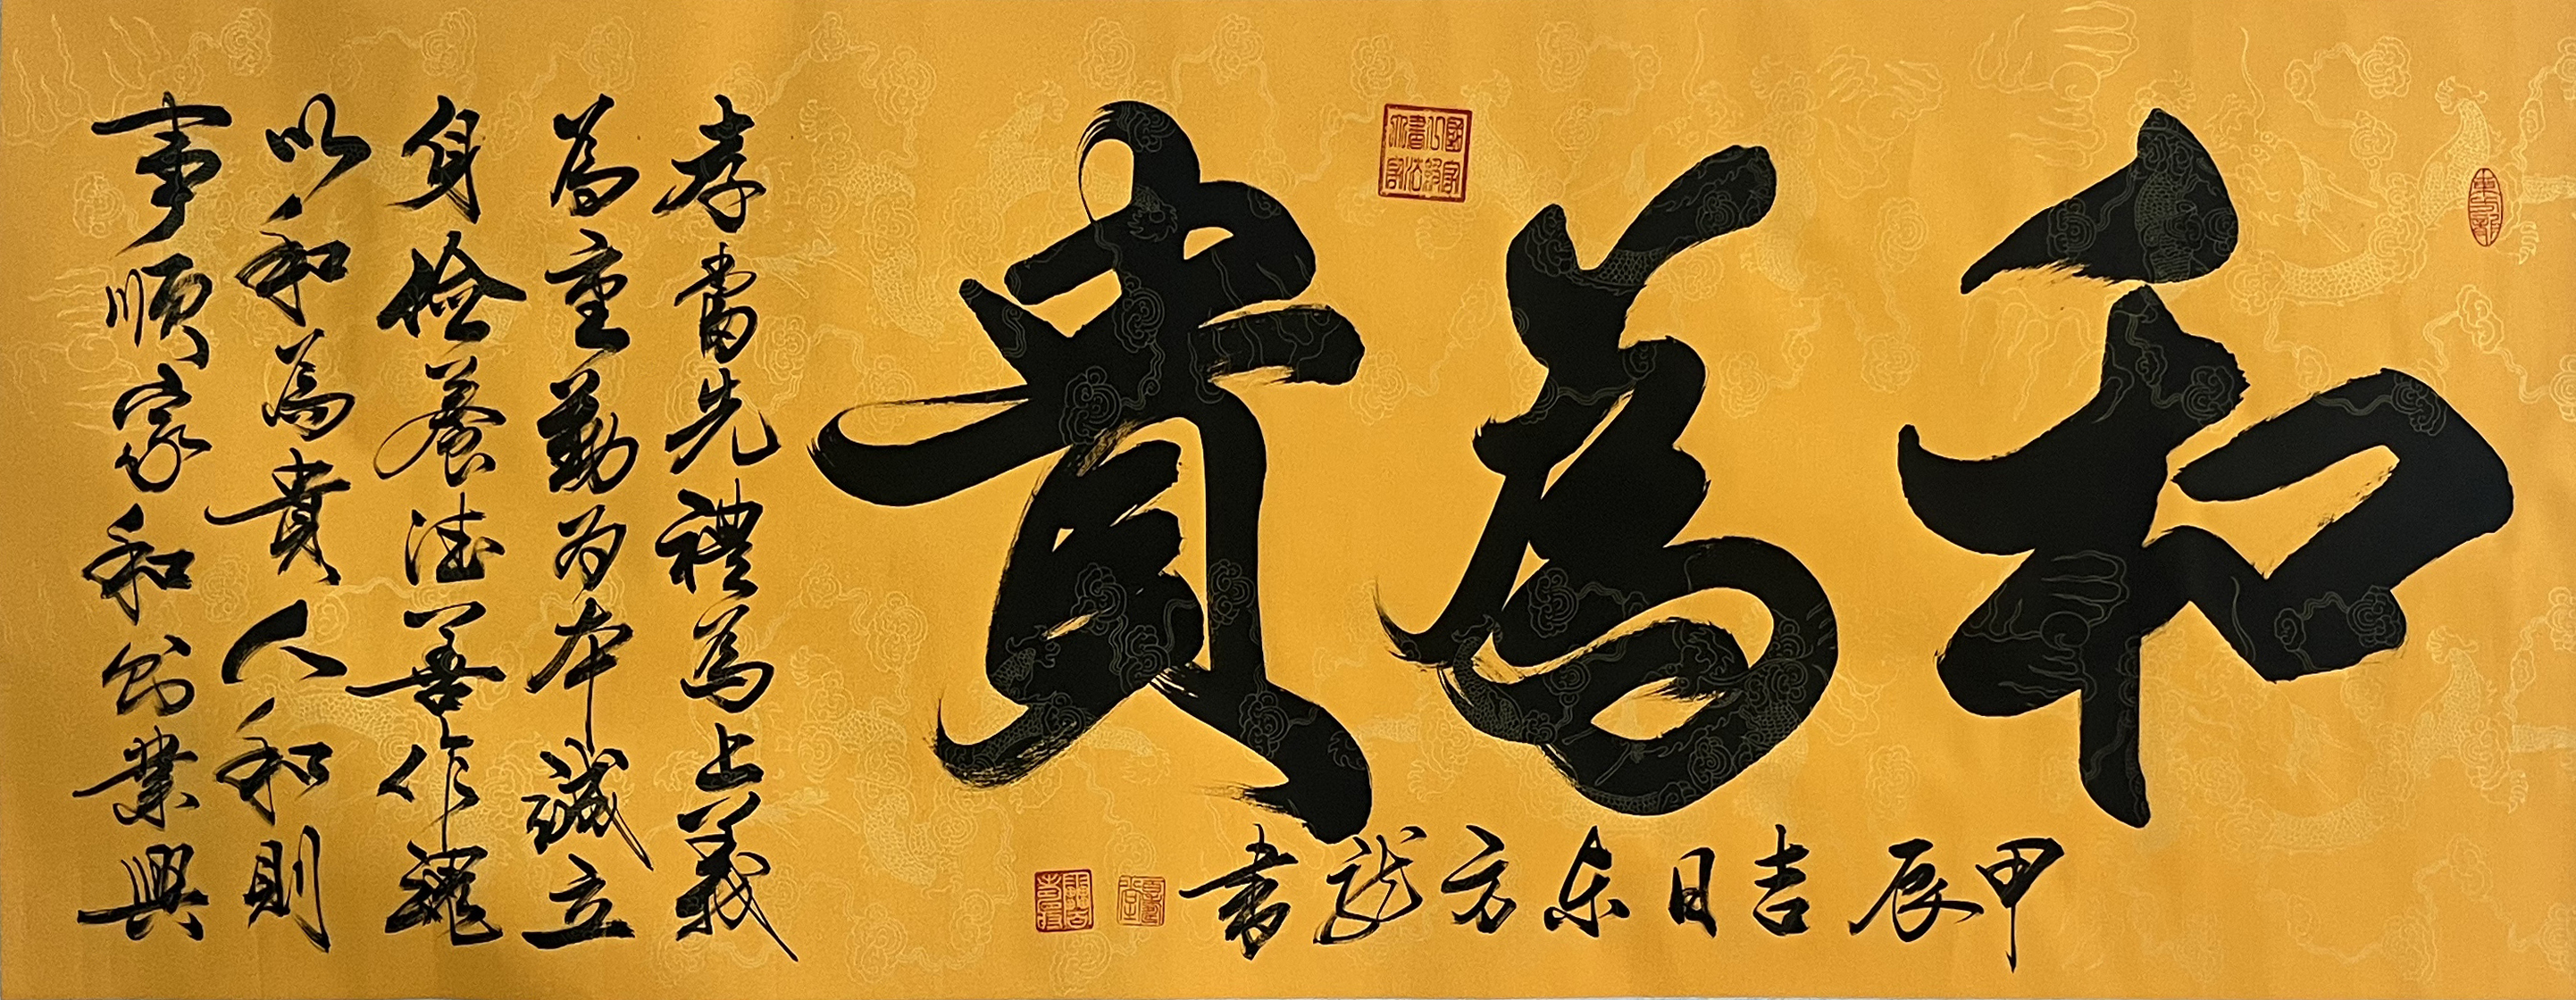 和為貴
甲辰吉日东方龙書
孝當先禮為上義
為重勤为本誠立
身儉養德善作魂
以和為貴人和則
事順家和则業興